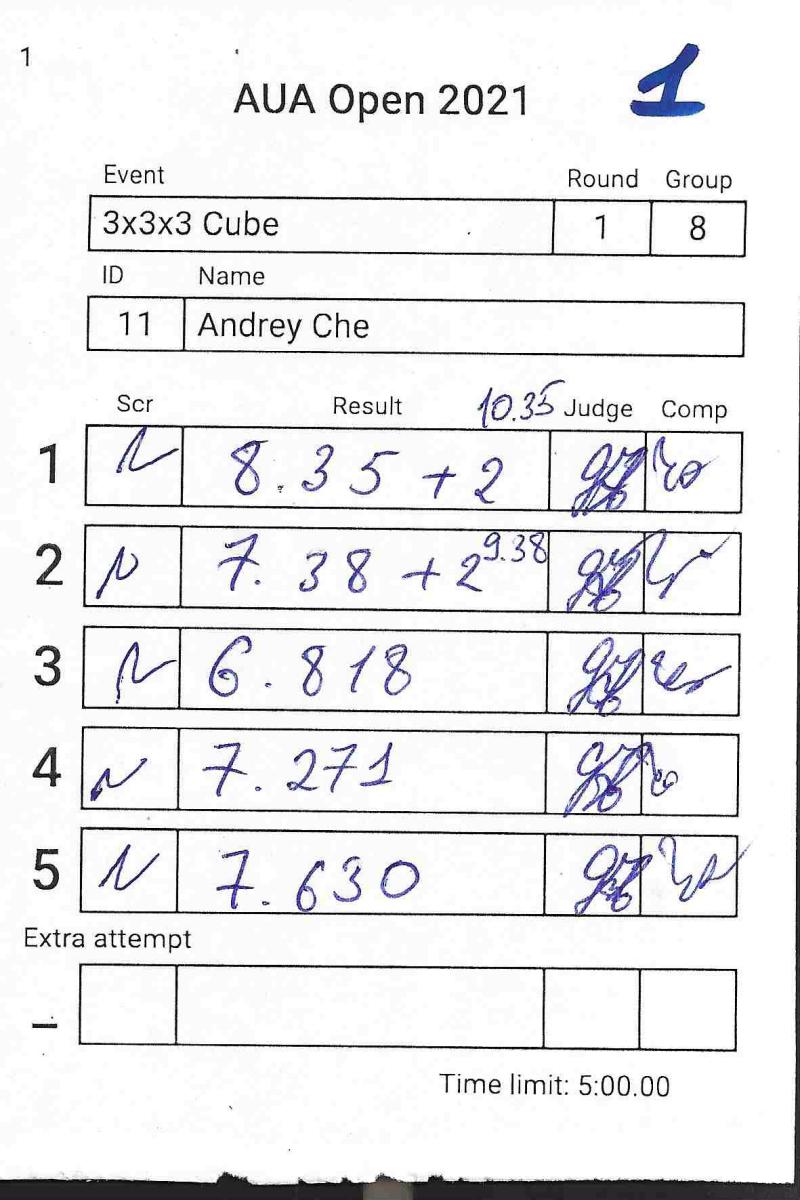 1
AUA Open 2021 1
Event Round Group
3x3x3 Cube 1 8
ID Name
11 Andrey Che
Scr Result 10.35 Judge Comp
1 8.35 + 2
2 7.38 + 2 9.38
3 6.818
4 7.271
5 7.630
Extra attempt
–
Time limit: 5:00.00